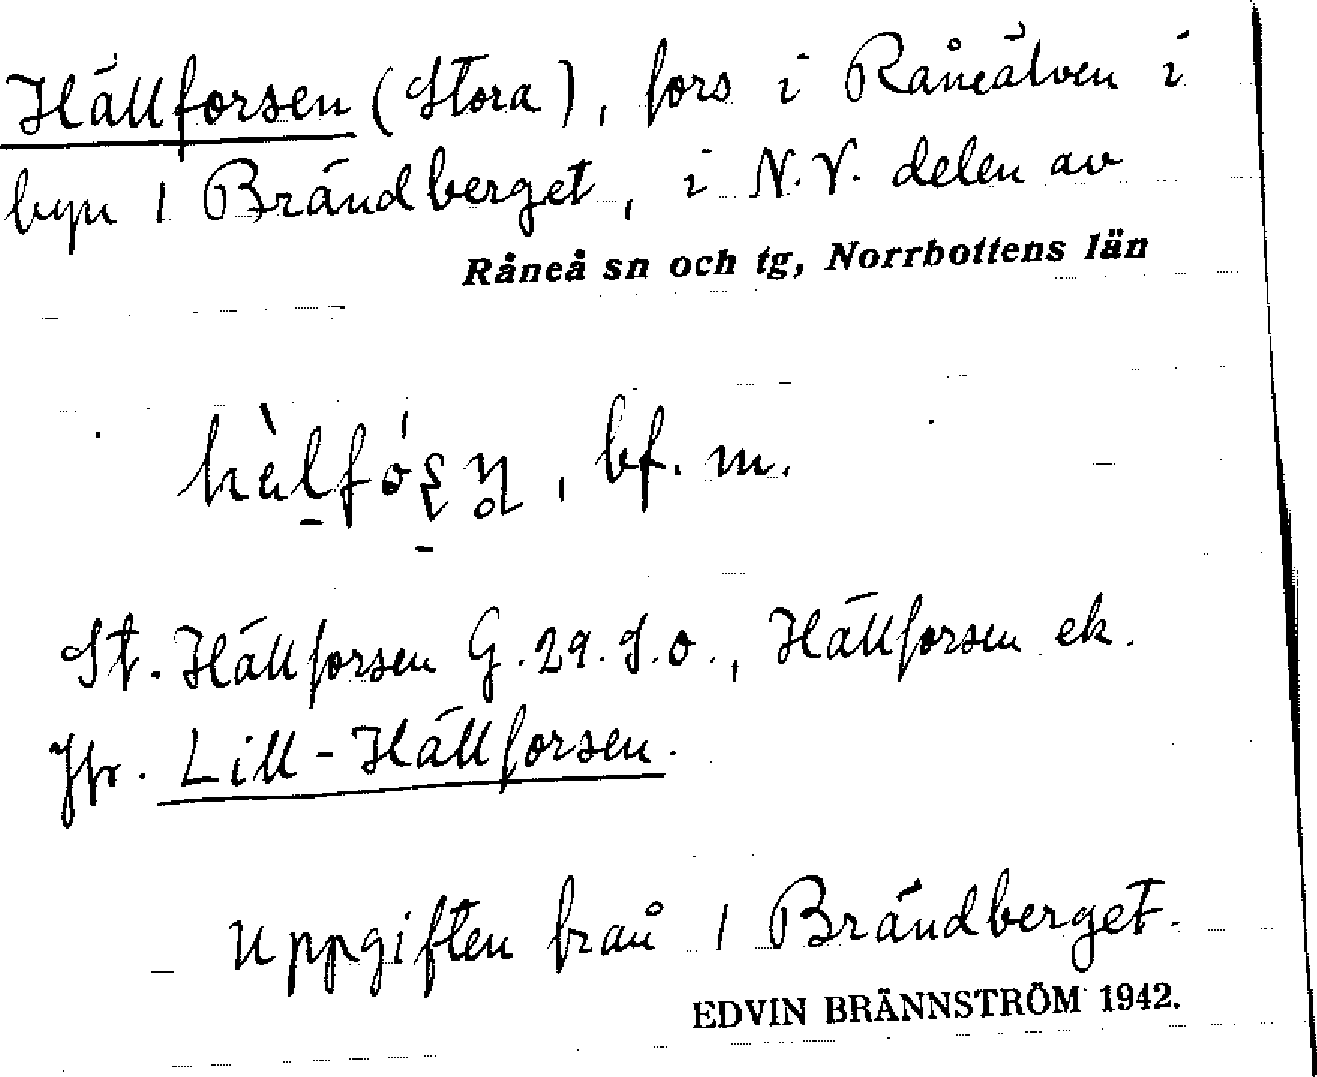 Hällforsen (Stora), fors i Råneälven i
byn 1 Brändberget, i N.V. delen av
Råneå sn och tg, Norrbottens län
, bf. m.
St. Hällforsen G. 29. S.o., Hällforsen ek.
Jfr. Lill-Hällforsen.
Uppgiften från 1 Brändberget.
EDVIN BRÄNNSTRÖM 1942.